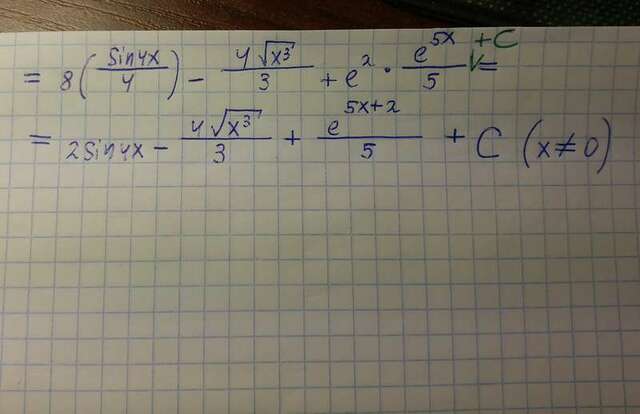 = 8(sin4x/4) - 4√x³/3 + e² · e^5x/5 + C =
= 2sin4x - 4√x³/3 + e^5x+2/5 + C (x ≠ 0)